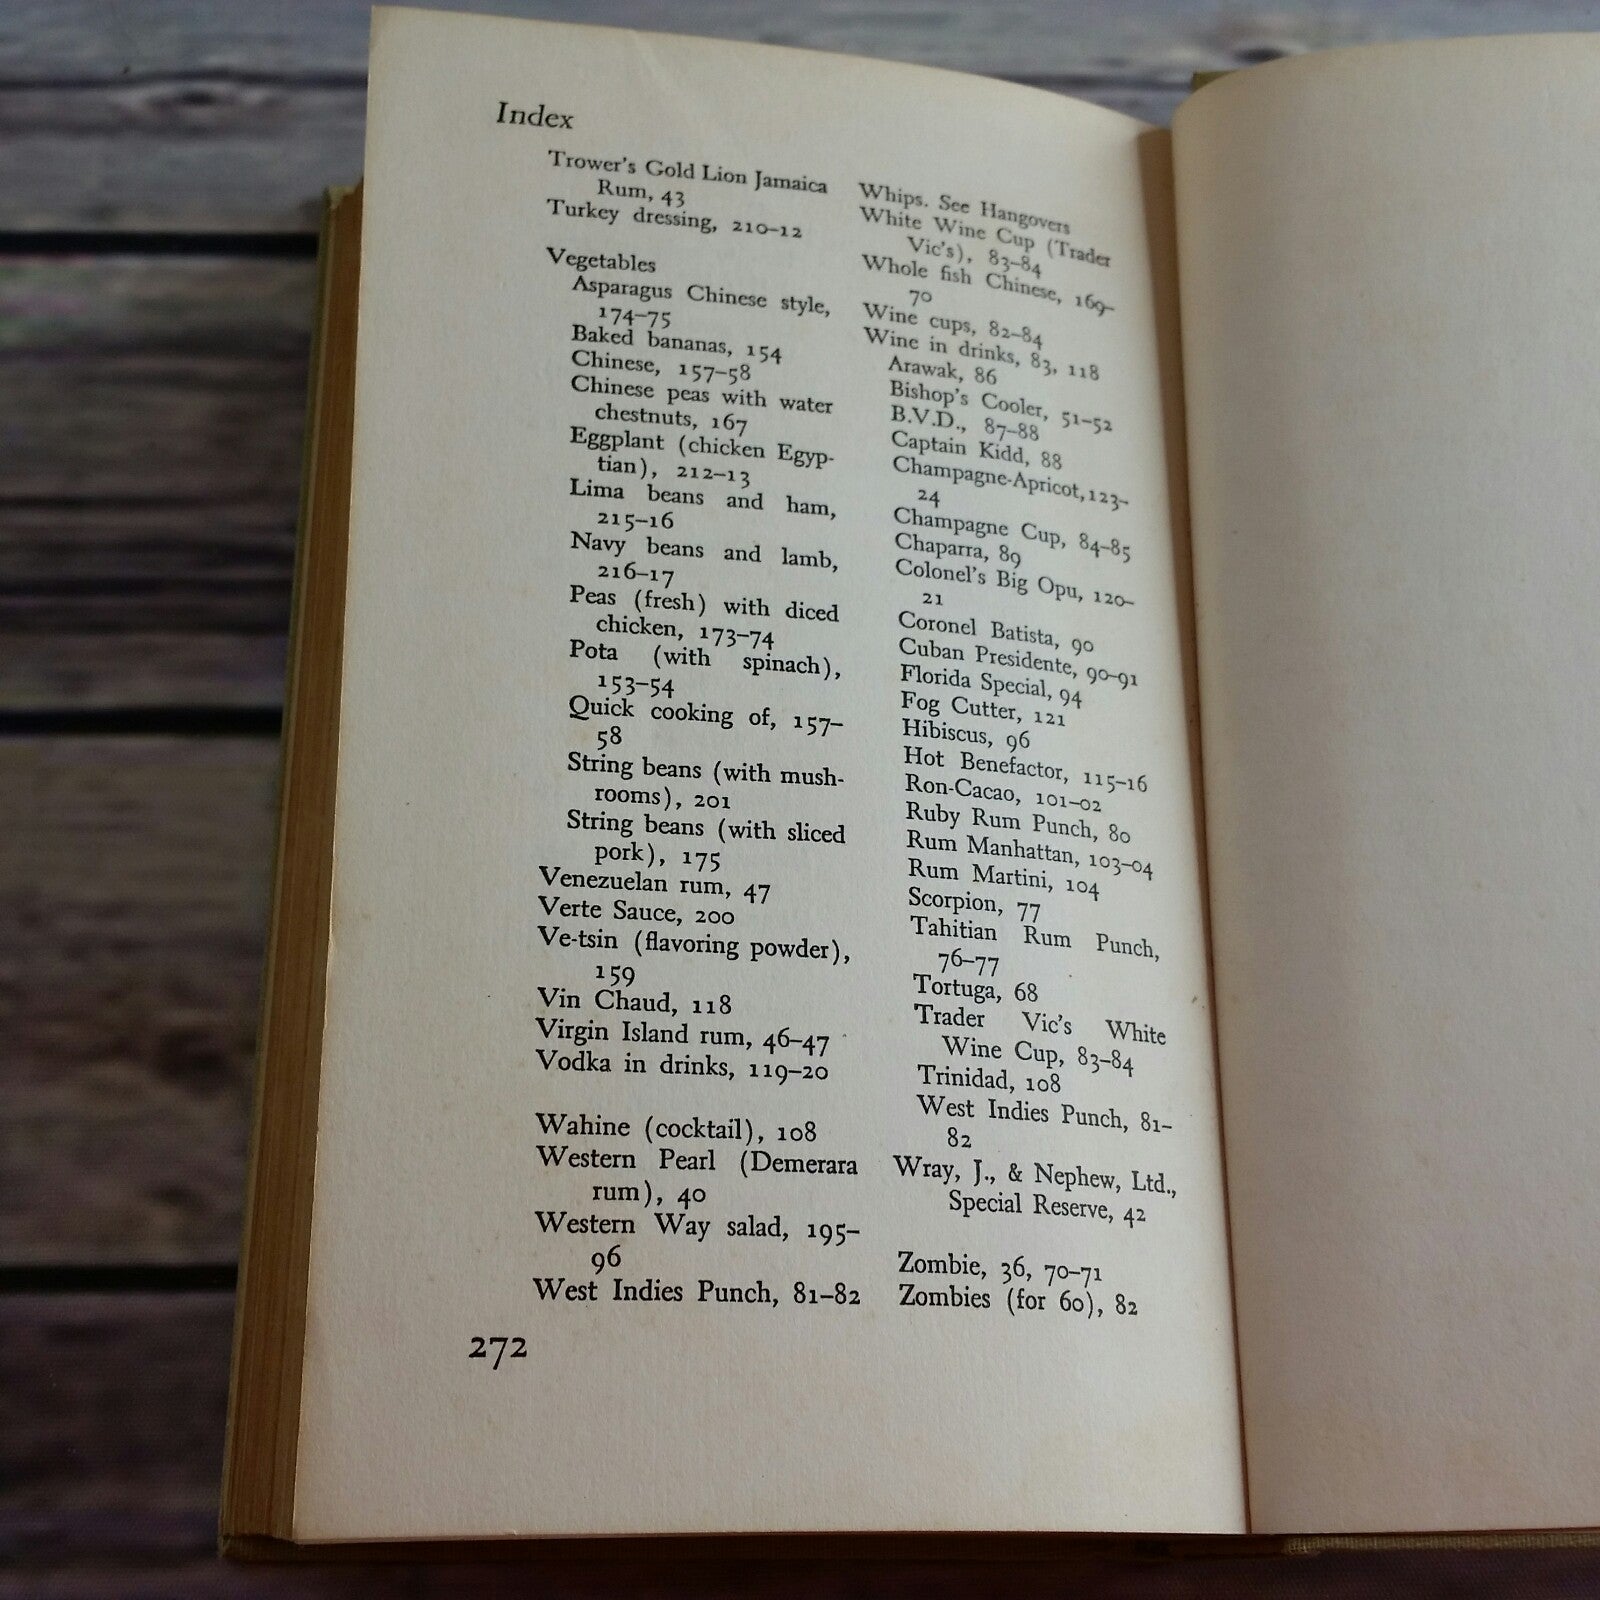 Index
Trower's Gold Lion Jamaica
Rum, 43
Turkey dressing, 210–12
Vegetables
Asparagus Chinese style,
174–75
Baked bananas, 154
Chinese, 157–58
Chinese peas with water
chestnuts, 167
Eggplant (chicken Egyp-
tian), 212–13
Lima beans and ham,
215–16
Navy beans and lamb,
216–17
Peas (fresh) with diced
chicken, 173–74
Pota (with spinach),
153–54
Quick cooking of, 157–
58
String beans (with mush-
rooms), 201
String beans (with sliced
pork), 175
Venezuelan rum, 47
Verte Sauce, 200
Ve-tsin (flavoring powder),
159
Vin Chaud, 118
Virgin Island rum, 46–47
Vodka in drinks, 119–20
Wahine (cocktail), 108
Western Pearl (Demerara
rum), 40
Western Way salad, 195–
96
West Indies Punch, 81–82
Whips. See Hangovers
White Wine Cup (Trader
Vic's), 83–84
Whole fish Chinese, 169–
70
Wine cups, 82–84
Wine in drinks, 83, 118
Arawak, 86
Bishop's Cooler, 51–52
B.V.D., 87–88
Captain Kidd, 88
Champagne-Apricot, 123–
24
Champagne Cup, 84–85
Chaparra, 89
Colonel's Big Opu, 120–
21
Coronel Batista, 90
Cuban Presidente, 90–91
Florida Special, 94
Fog Cutter, 121
Hibiscus, 96
Hot Benefactor, 115–16
Ron-Cacao, 101–02
Ruby Rum Punch, 80
Rum Manhattan, 103–04
Rum Martini, 104
Scorpion, 77
Tahitian Rum Punch,
76–77
Tortuga, 68
Trader Vic's White
Wine Cup, 83–84
Trinidad, 108
West Indies Punch, 81–
82
Wray, J., & Nephew, Ltd.,
Special Reserve, 42
Zombie, 36, 70–71
Zombies (for 60), 82
272